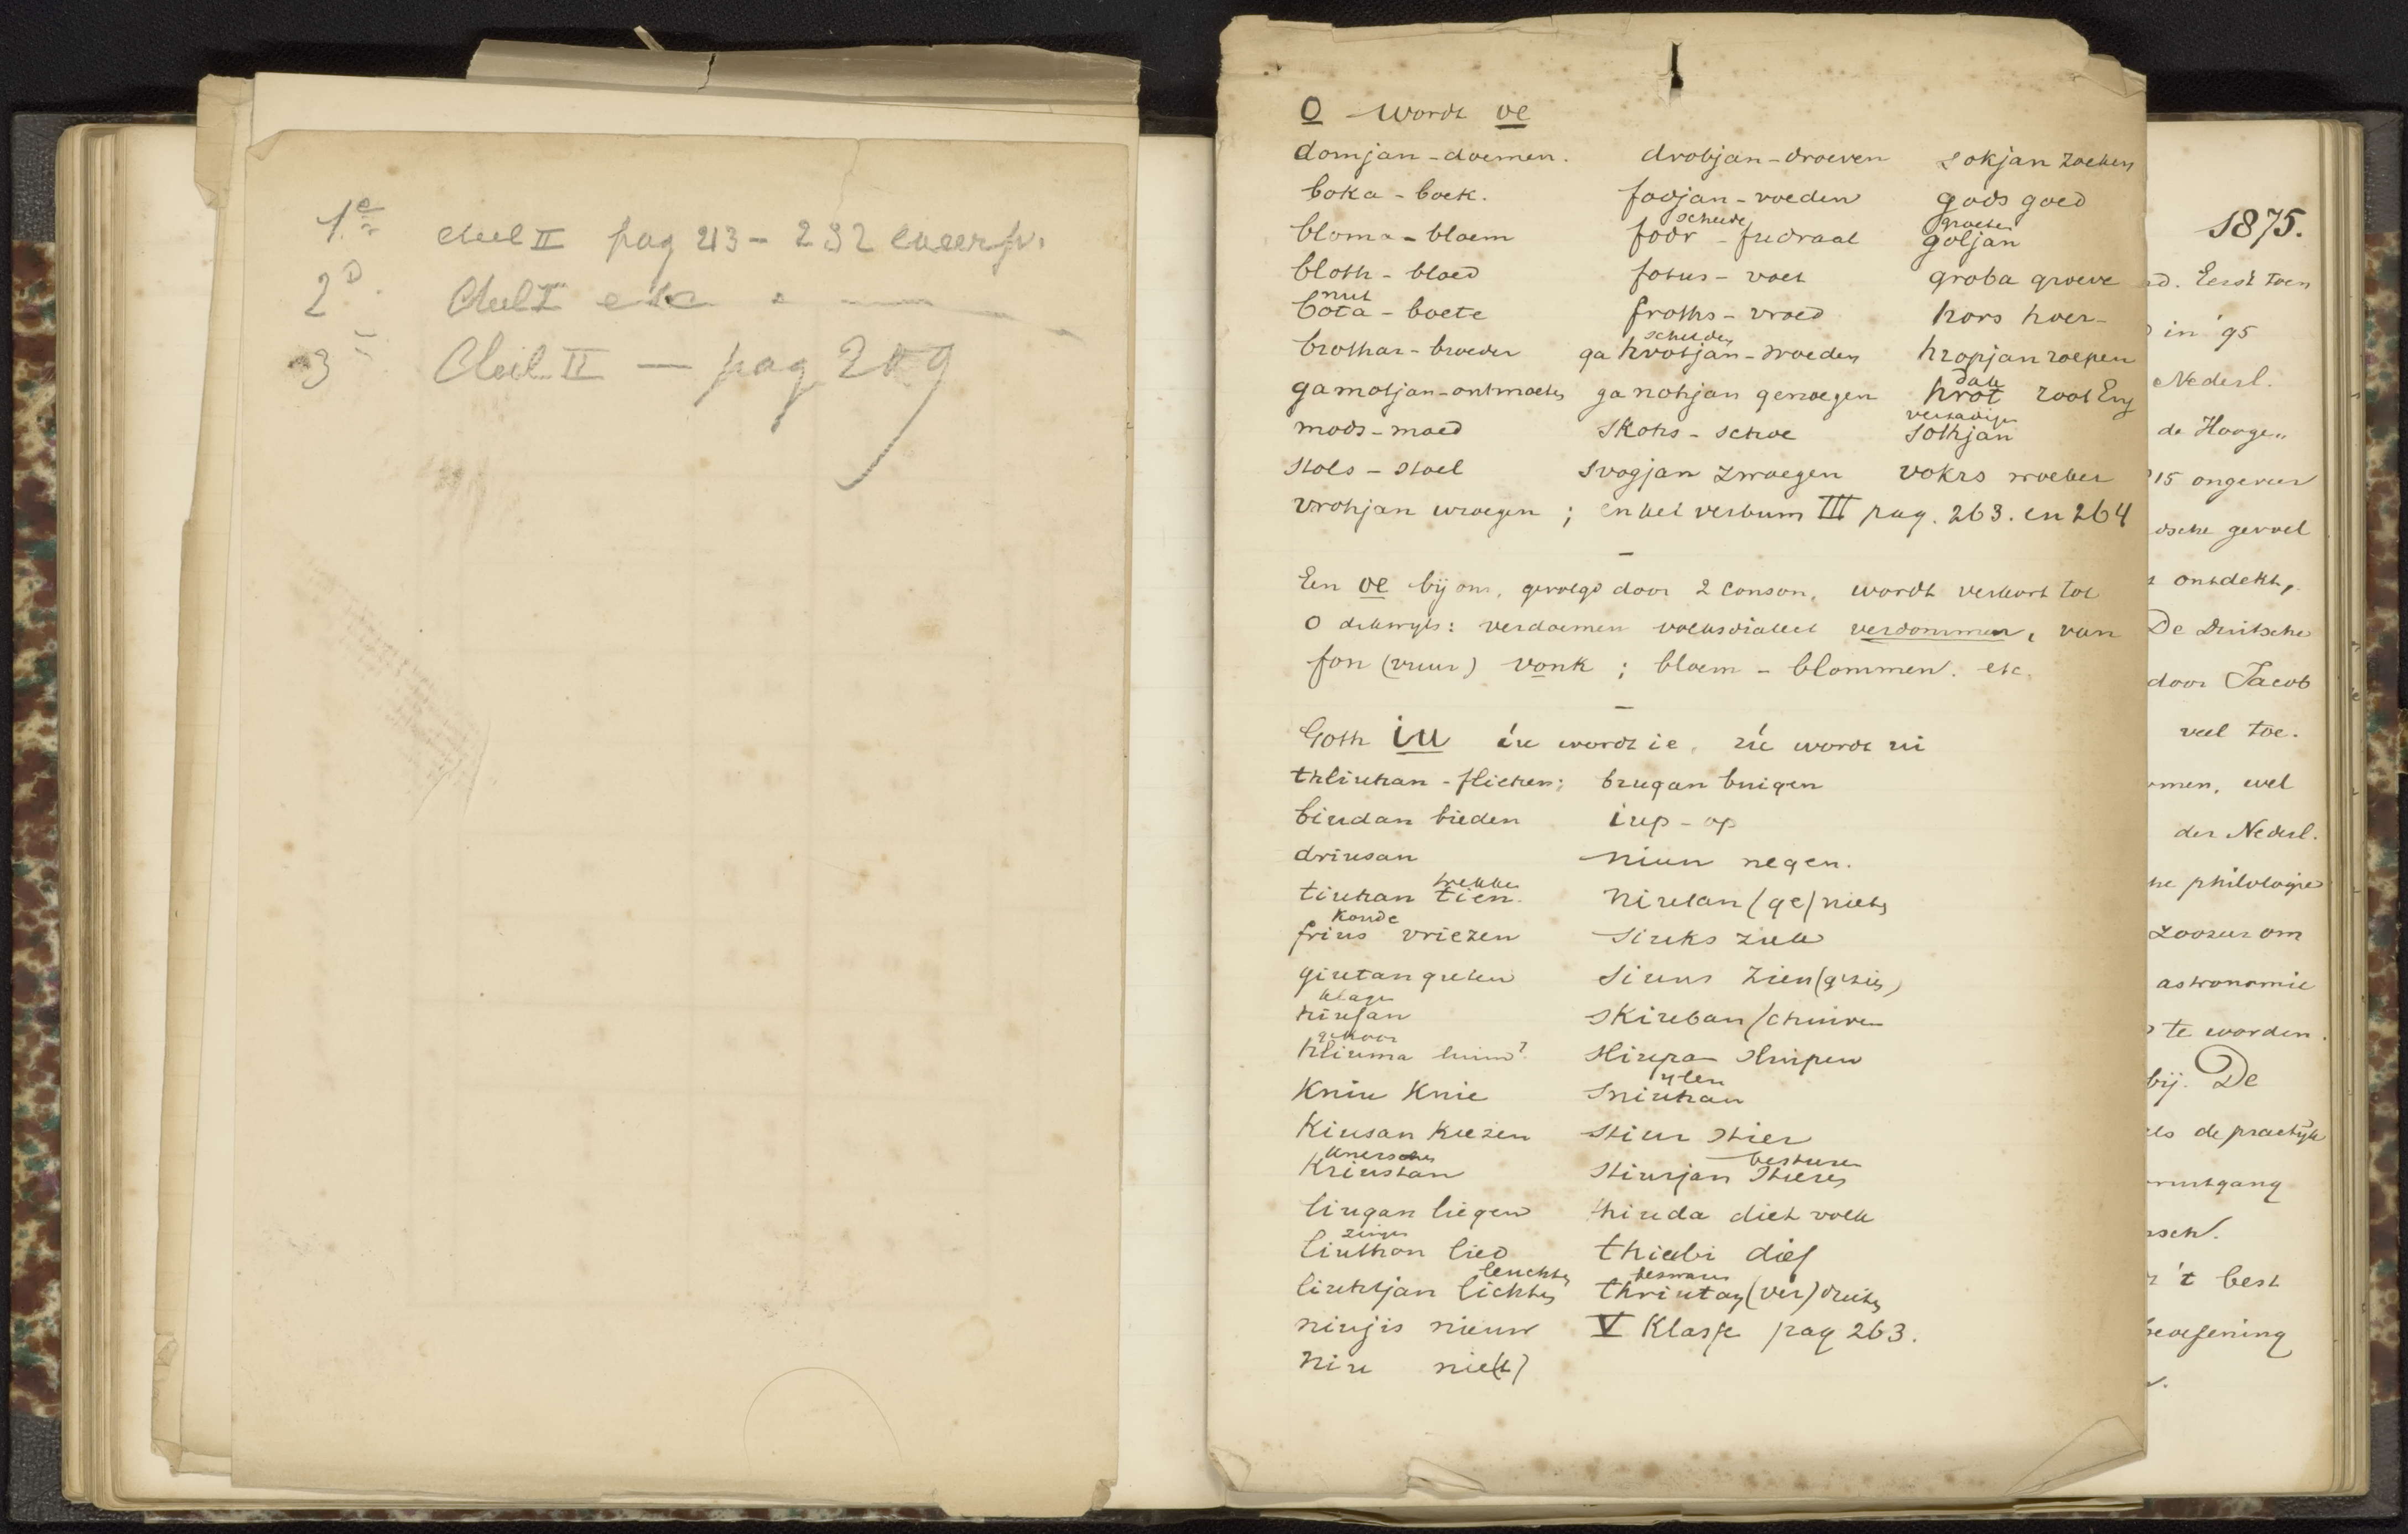 1e deel II pag 213 - 232
2D. deel I etc
3 deel II — pag 219
O wordt oe
domjan - doemen. drobjan - droeven sokjan zoeken
boka - boek. fodjan - voeden gods goed
bloma - bloem fodr - fudraal scheede goljan groeten
bloth - bloed fotus - voet groba groeve
bota - boete nut froths - vroed hors hoer -
brothar - broeder ga hvotjan - woeden schelden hropjan roepen
gamotjan - ontmoeten ga nohjan genoegen hrot dak root Eng
mods - moed skohs - schoe sothjan verzadigen
stols - stoel svogjan zwoegen vokrs woeker
vrohjan wroegen ; en het verbum III pag. 263. en 264
–
Een oe bij ons, gevolgd door 2 conson. wordt verkort tot
o dikwyls: verdoemen volksdialect verdommen, van
fon (vuur) vonk ; bloem - blommen. etc.
–
Goth iu íu wordt ie, iú wordt ui
thliuhan - flieken; biugan buigen
biudan bieden iup - op
driusan niun negen.
tiuhan tien. trekke niutan (ge) nieten
frius vriezen koude siuks ziek
giutan gieten siuns zien (gezien)
hiufan klage skiuban schuiven
hliuma luim? gehoor sliupan sluipen
Kniu Knie sniuhan ylen
Kiusan kiezen stiur stier
Kriustan knersen stiurjan stieren besturen
liugan liegen thiuda diet volk
liuthon lied zingen thiubi dief
liuhtjan lichten leuchten thriutan (ver) drieten bezwaren
niujis nieuw V Klasse pag 263.
niu nie(t)
1875.
d. Eerst toen
in '95
Nederl.
de Hooge„
15 ongeveer
dsche gevoel
ontdekt,
De Duitsche
door Jacob
veel toe.
omen, wel
der Nederl.
he philologie
zoozeer om
astronomie
te worden.
bij. De
els de practijk
oruitgang
asch.
't best
beoefening